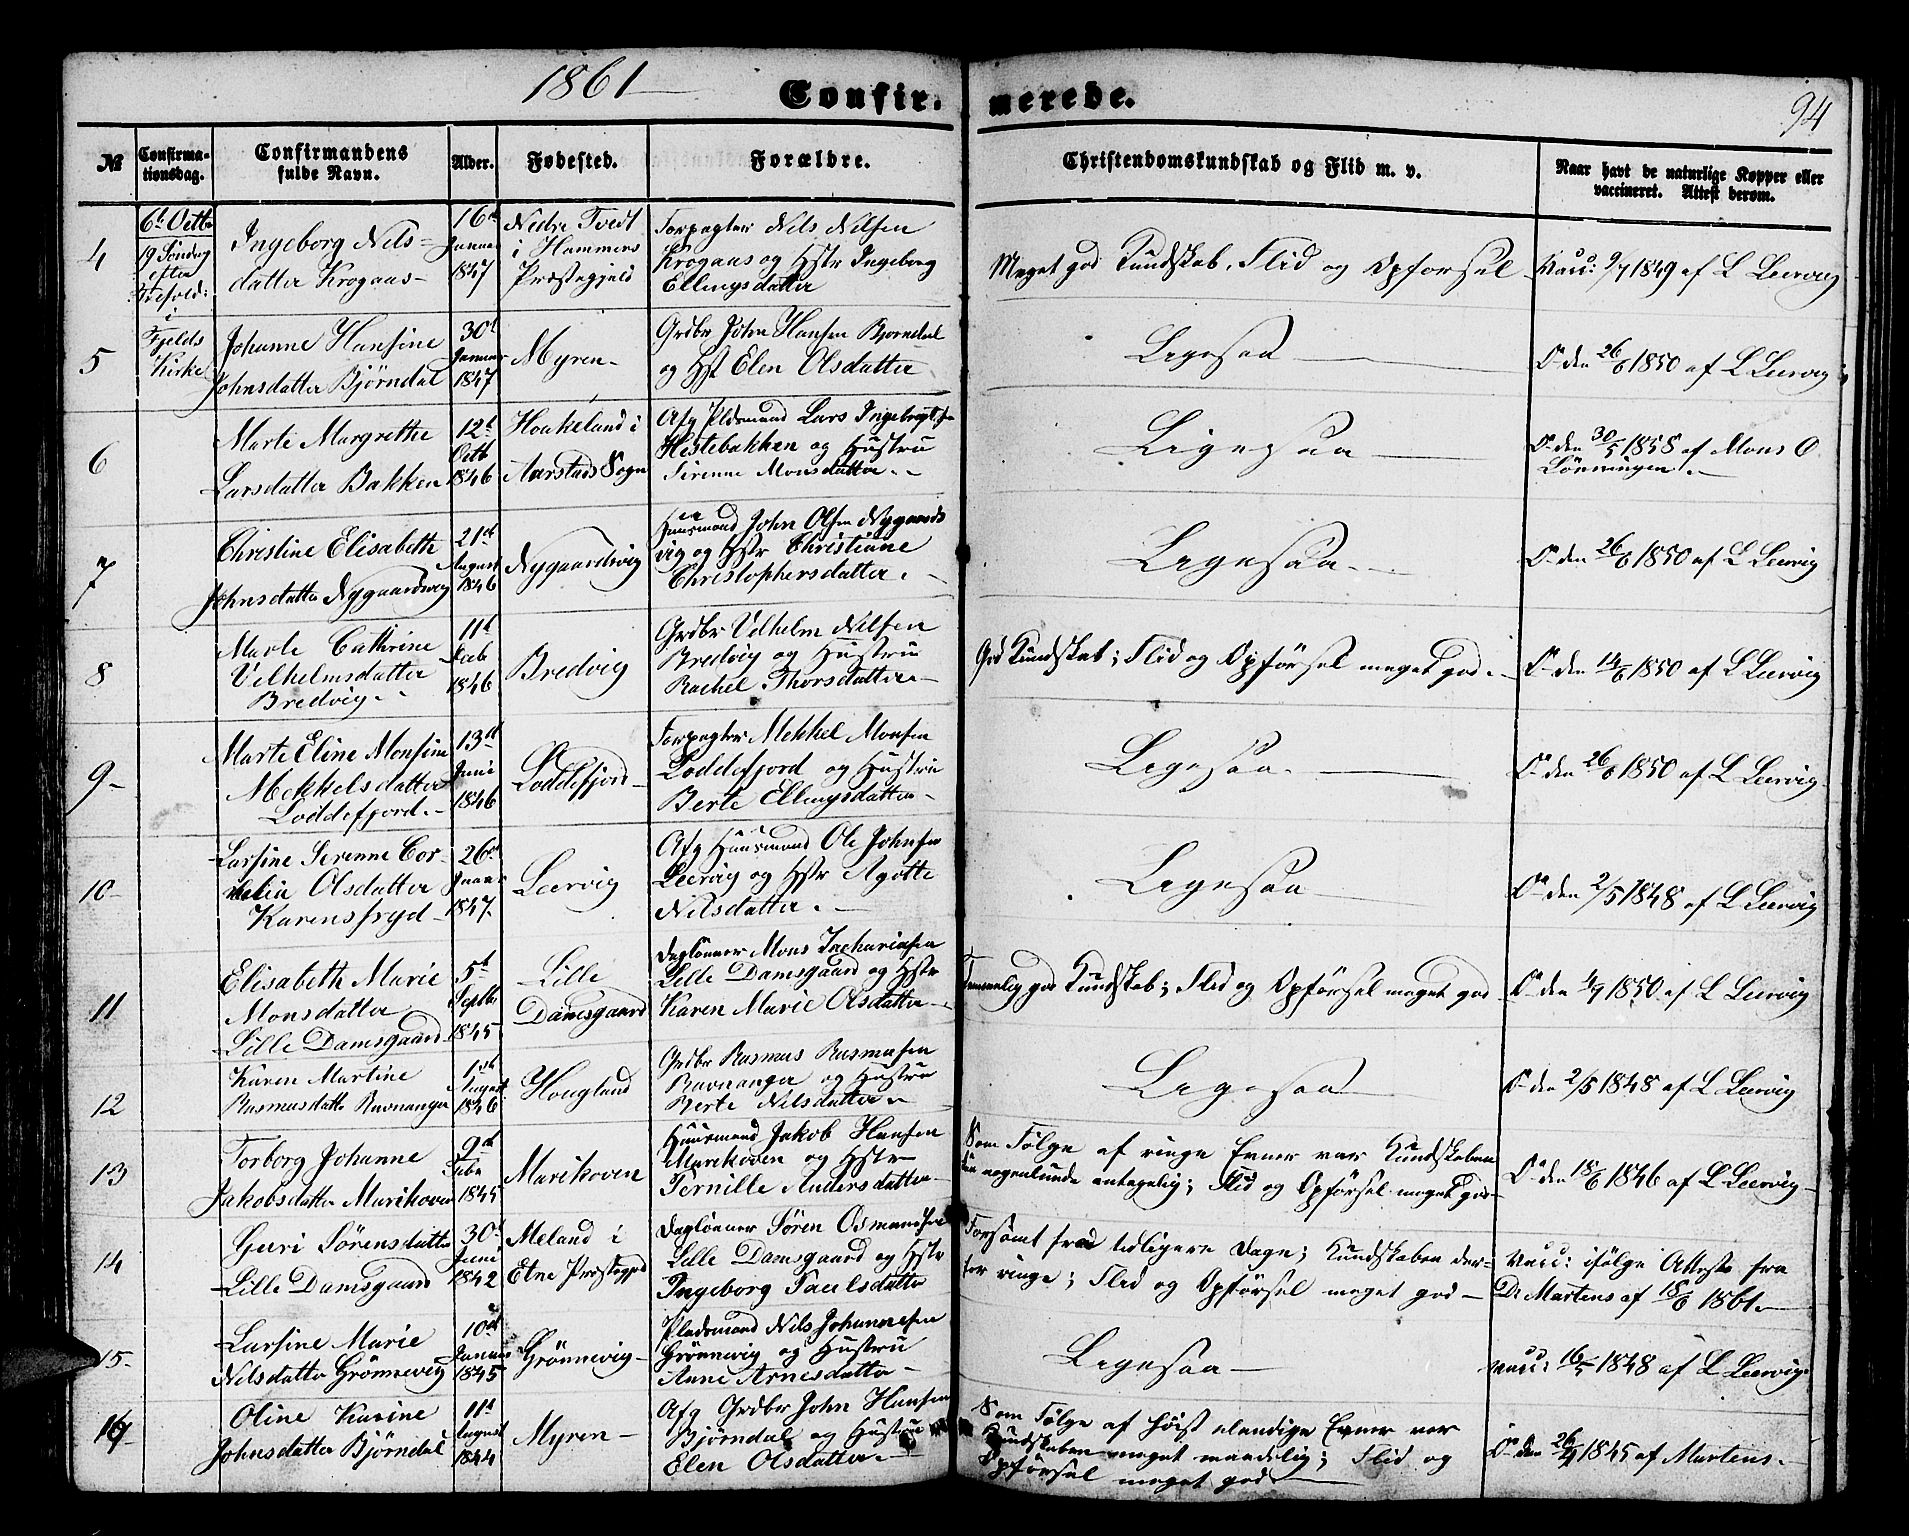 1861
Confirmerede.
94
№
Confirmationsdag.
Confirmandens fulde Navn.
Alder.
Fødested.
Forældre.
Christendomskundskab og Flid m. v.
Naar havt de naturlige Kopper eller vaccineret. Attest derom.
6t Octb
19 Søndag
efter
Trefold:
i
Fjelds
Kirke
4
Ingeborg Nils-
datter Krogaas-
16de
Januar
1847
Nedre Tvedt
i Hammers
Præstegjeld
Forpagter Nils Nilsen
Krogaas og Hstr Ingeborg
Ellingsdatter
Meget god Kundskab, Flid og Opførsel
Vacc: 9/7 1849 af L Leervig
5
Johanne Hansine
Johnsdatter Bjørndal
30t
Januar
1847
Myren-
Grdbr John Hansen Bjørndal
og Hst Elen Olsdatter
Ligesaa
Do den 26/6 1850 af L Leervig
6
Marte Margrethe
Larsdatter Bakken
12t
Octb
1846
Haakeland i
Aarstads Sogn
Afg Pldsmand Lars Ingebrigts.
Hestebakken og Hustru
Sirenne Monsdatter.-
Ligesaa
Do den 30/5 1858 af Mons O
Lønningen.-
7
Christine Elisabeth
Johnsdatter Nygaardsvig
21de
August
1846
Nygaardsvig
Huusmand John Olsen Nygaards
vig og Hstr Christiane
Christophersdatter.-
Ligesaa.-
Do den 26/6 1850 af L Leervig
8
Marte Cathrine
Vilhelmsdatter
Bredvig.-
11t
Feb
1846
Bredvig
Grdbr Vilhelm Nilsen
Bredvig og Hustru
Rachel Thorsdatter-
God Kundskab; Flid og Opførsel meget god.-
Do den 14/6 1850 af L Leervig
9-
Marte Eline Monsine
Mekkelsdatter
Loddefjord.-
13de
Juni
1846
Loddefjord-
Forpagter Mekkel Monsen
Loddefjord og Hustru
Berte Ellingsdatter-
Ligesaa.
Do den 26/6 1850 af L Leervig.
10-
Larsine Serenne Cor-
nelia Olsdatter
Karensfryd-
26de
Januar
1847.
Leervig
Afg Huusmand Ole Johnsen
Leervig og Hstr Agatte
Nilsdatter.-
Ligesaa
Do den 2/5 1848 af L Leervig
11
Elisabeth Marie
Monsdatter
Lille Damsgaard
5t
Septbr
1845
Lille
Damsgaard
Dagløner Mons Zachariasen
Lille Damsgaard og Hstr
Karen Marie Olsdatter
Temmelig god Kundskab; Flid og Opførsel meget god
Do den 1/9 1850 af L Leervig
12
Karen Martine
Rasmusdattr Ravnanger
1ste
August
1846
Hougland
Grdbr Rasmus Rasmusen
Ravnanger og Hustru
Berte Nilsdatter-
Ligesaa
Do den 2/5 1848 af L Leervig
13
Torborg Johanne
Jakobsdatter Marikoven
9de
Febr
1845
Marikoven
Huusmand Jakob Hansen
Marikoven og Hstr
Pernille Andersdatter-
Som Følge af ringe Evner var Kundskaben
kun nogenlunde antagelig; Flid og Opførsel meget god-
Do den 18/6 1846 af L Leervig-
14
Guri Sørensdatter
Lille Damsgaard
30t
Juni
1842
Meland i
Etne Præstegjed
Dagløner Søren Osmundsen
Lille Damsgaard og Hstr
Ingeborg Paulsdatter
Forsømt fra tidligere Dage; Kundskaben der-
for ringe; Flid og Opførsel meget god-
Vacc: ifølge Attest fra
Dr Martens af 18/6 1861.-
15-
Larsine Marie
Nilsdatter Grønnevig
10de
Januar
1845
Grønnevig-
Pladsmand Nils Johannesen
Grønnevig og Hustru
Anne Arnesdatter
Ligesaa-
Vacc: 16/5 1848 af L Leervig.
16-
Oline Karine
Johnsdatter Bjørndal
11t
August
1844
Myren-
Afg Grdbr John Hansen
Bjørndal og Hustru
Elen Olsdatter.-
Som Følge af høist elendige Evner var
Kundskaben meget maadelig; Flid og
Opførsel meget god
Do den 26/9 1845 af Martens.